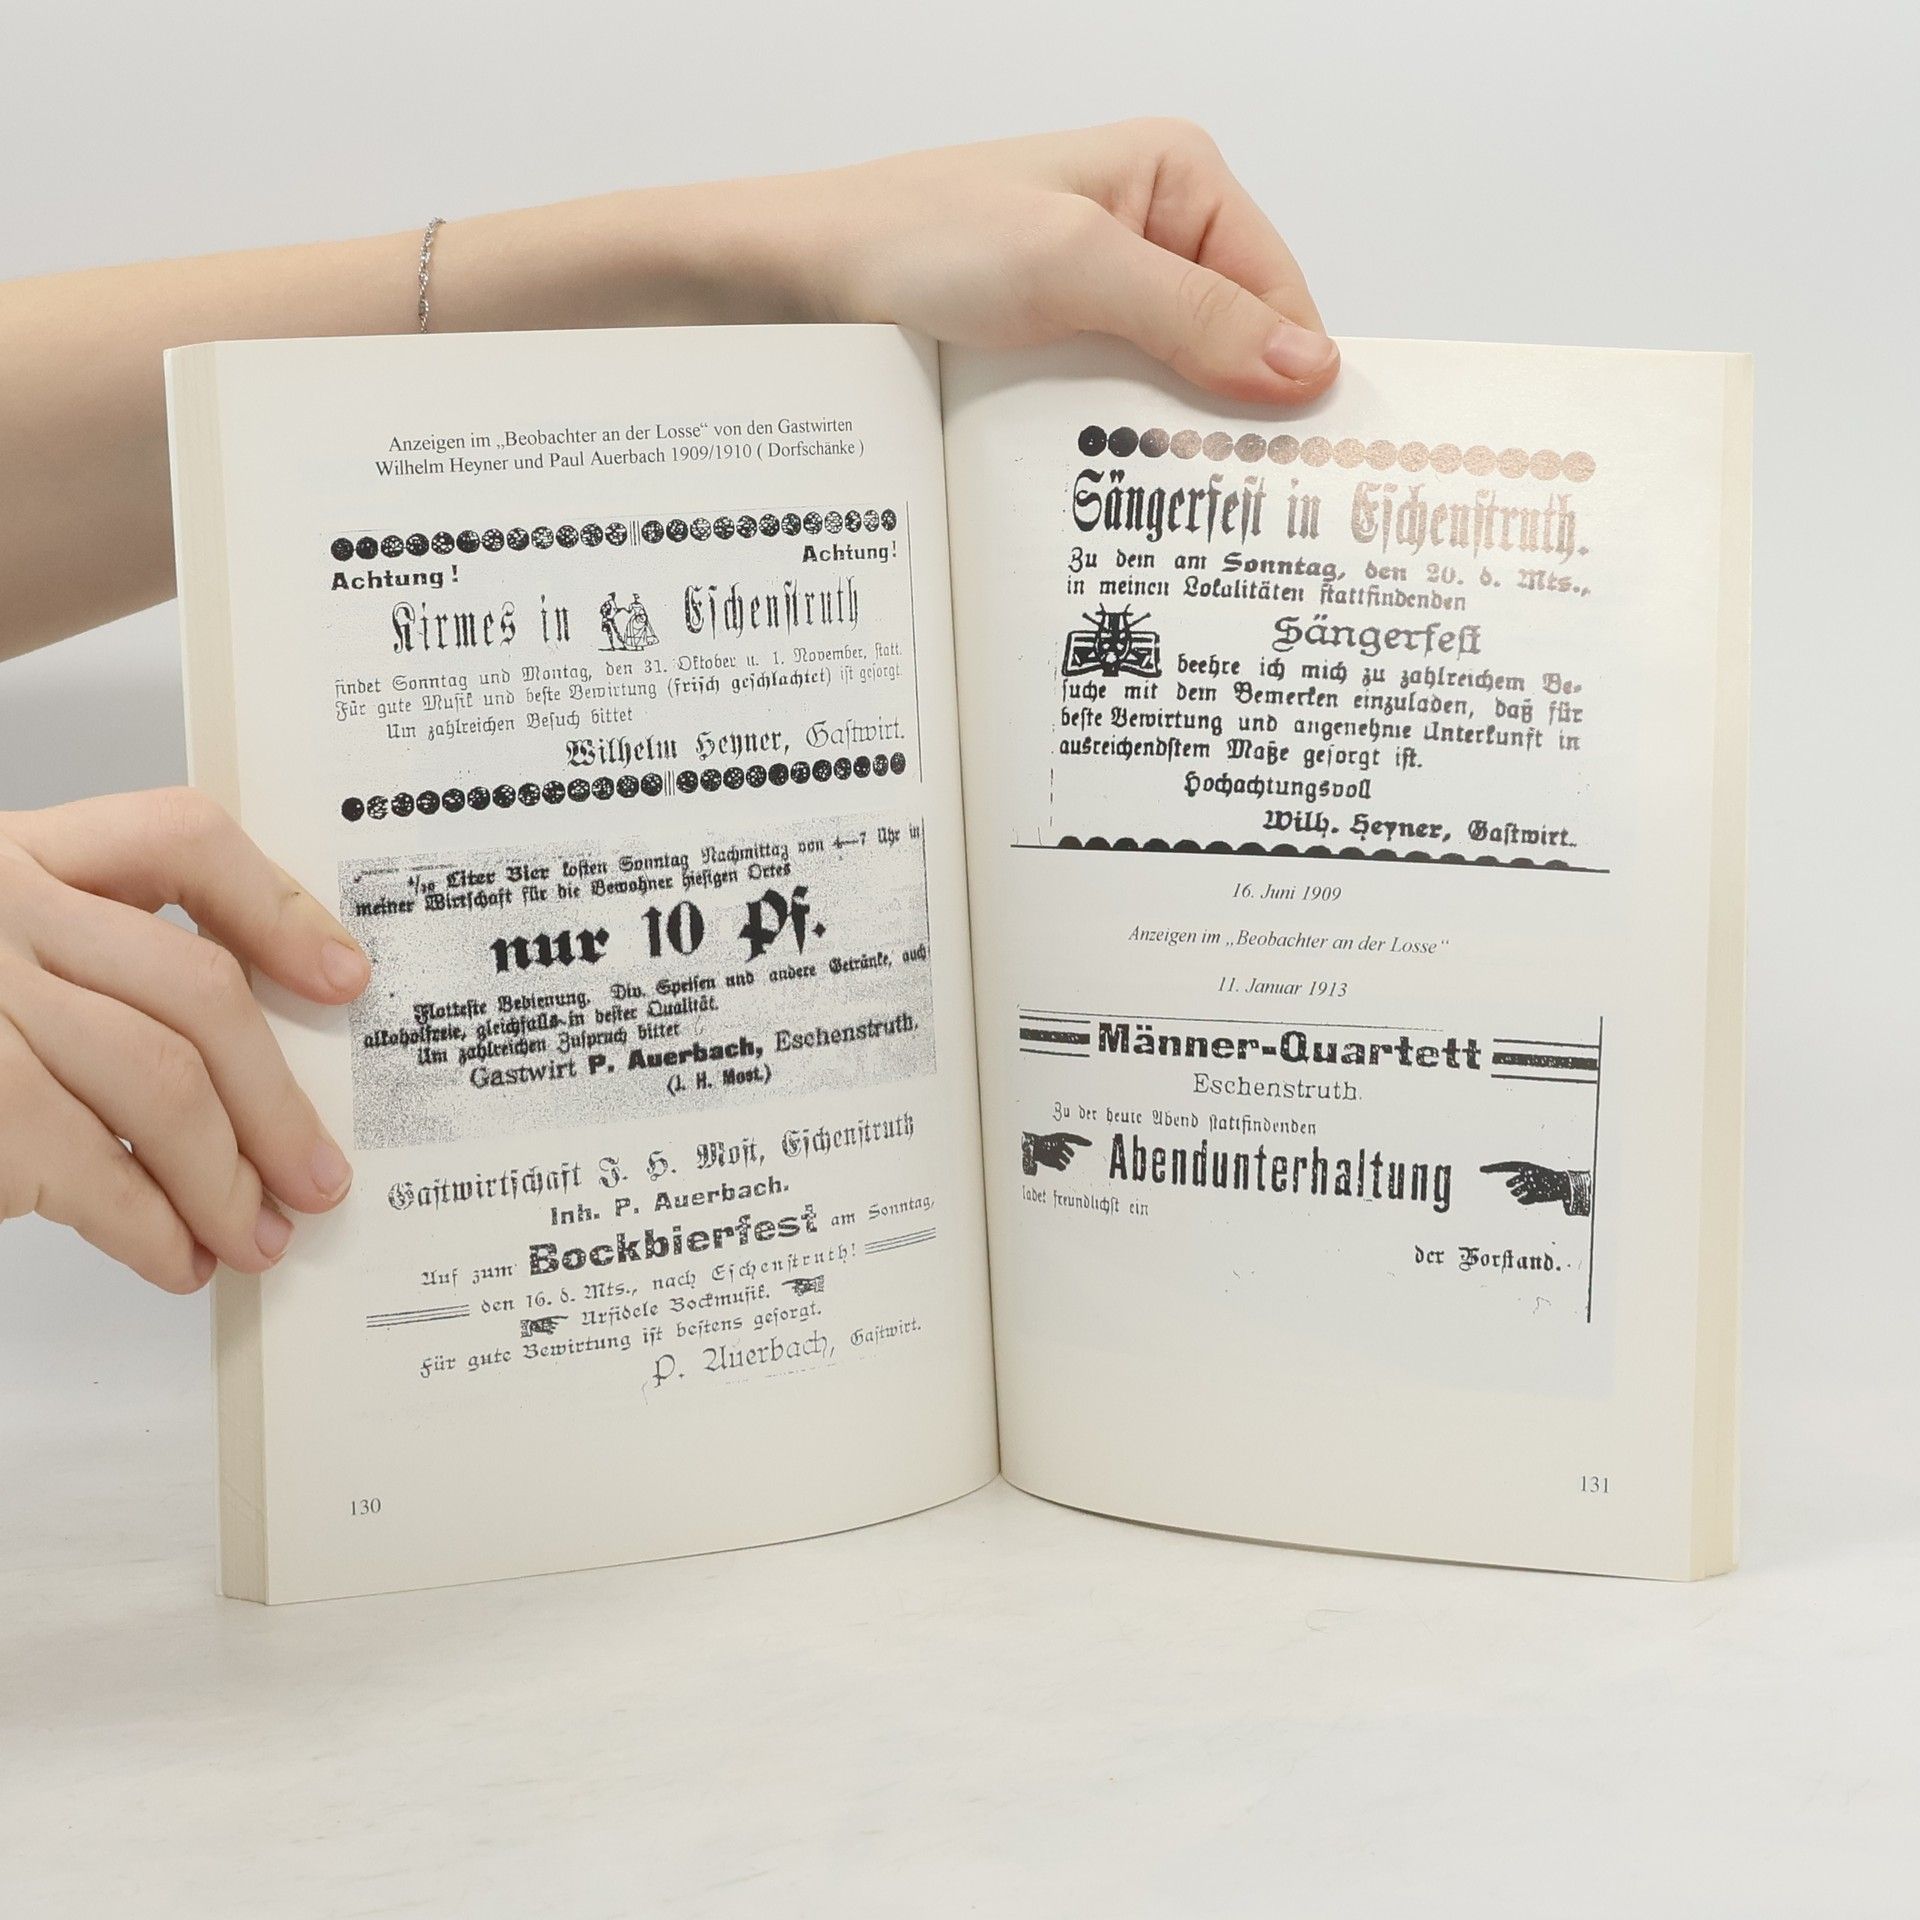 Anzeigen im „Beobachter an der Losse“ von den Gastwirten
Wilhelm Heyner und Paul Auerbach 1909/1910 ( Dorfschänke )
Achtung!
Achtung!
Kirmes in Eschenstruth
findet Sonntag und Montag, den 31. Oktober u. 1. November, statt.
Für gute Musik und beste Bewirtung (frisch geschlachtet) ist gesorgt.
Um zahlreichen Besuch bittet
Wilhelm Heyner, Gastwirt.
4/10 Liter Bier kosten Sonntag Nachmittag von 4—7 Uhr in
meiner Wirtschaft für die Bewohner hiesigen Ortes
nur 10 Pf.
Flotteste Bedienung. Div. Speisen und andere Getränke, auch
alkoholfreie, gleichfalls in bester Qualität.
Um zahlreichen Zuspruch bittet
Gastwirt P. Auerbach, Eschenstruth,
(J. H. Most.)
Gastwirtschaft J. H. Most, Eschenstruth
Inh. P. Auerbach.
Auf zum Bockbierfest am Sonntag,
den 16. d. Mts., nach Eschenstruth!
Urfidele Bockmusik.
Für gute Bewirtung ist bestens gesorgt.
P. Auerbach, Gastwirt.
130
Sängerfest in Eschenstruth.
Zu dem am Sonntag, den 20. d. Mts.,
in meinen Lokalitäten stattfindenden
Sängerfest
beehre ich mich zu zahlreichem Be-
suche mit dem Bemerken einzuladen, daß für
beste Bewirtung und angenehme Unterkunft in
ausreichendstem Maße gesorgt ist.
Hochachtungsvoll
Wilh. Heyner, Gastwirt.
16. Juni 1909
Anzeigen im „Beobachter an der Losse“
11. Januar 1913
Männer-Quartett
Eschenstruth.
Zu der heute Abend stattfindenden
Abendunterhaltung
ladet freundlichst ein
der Vorstand.
131